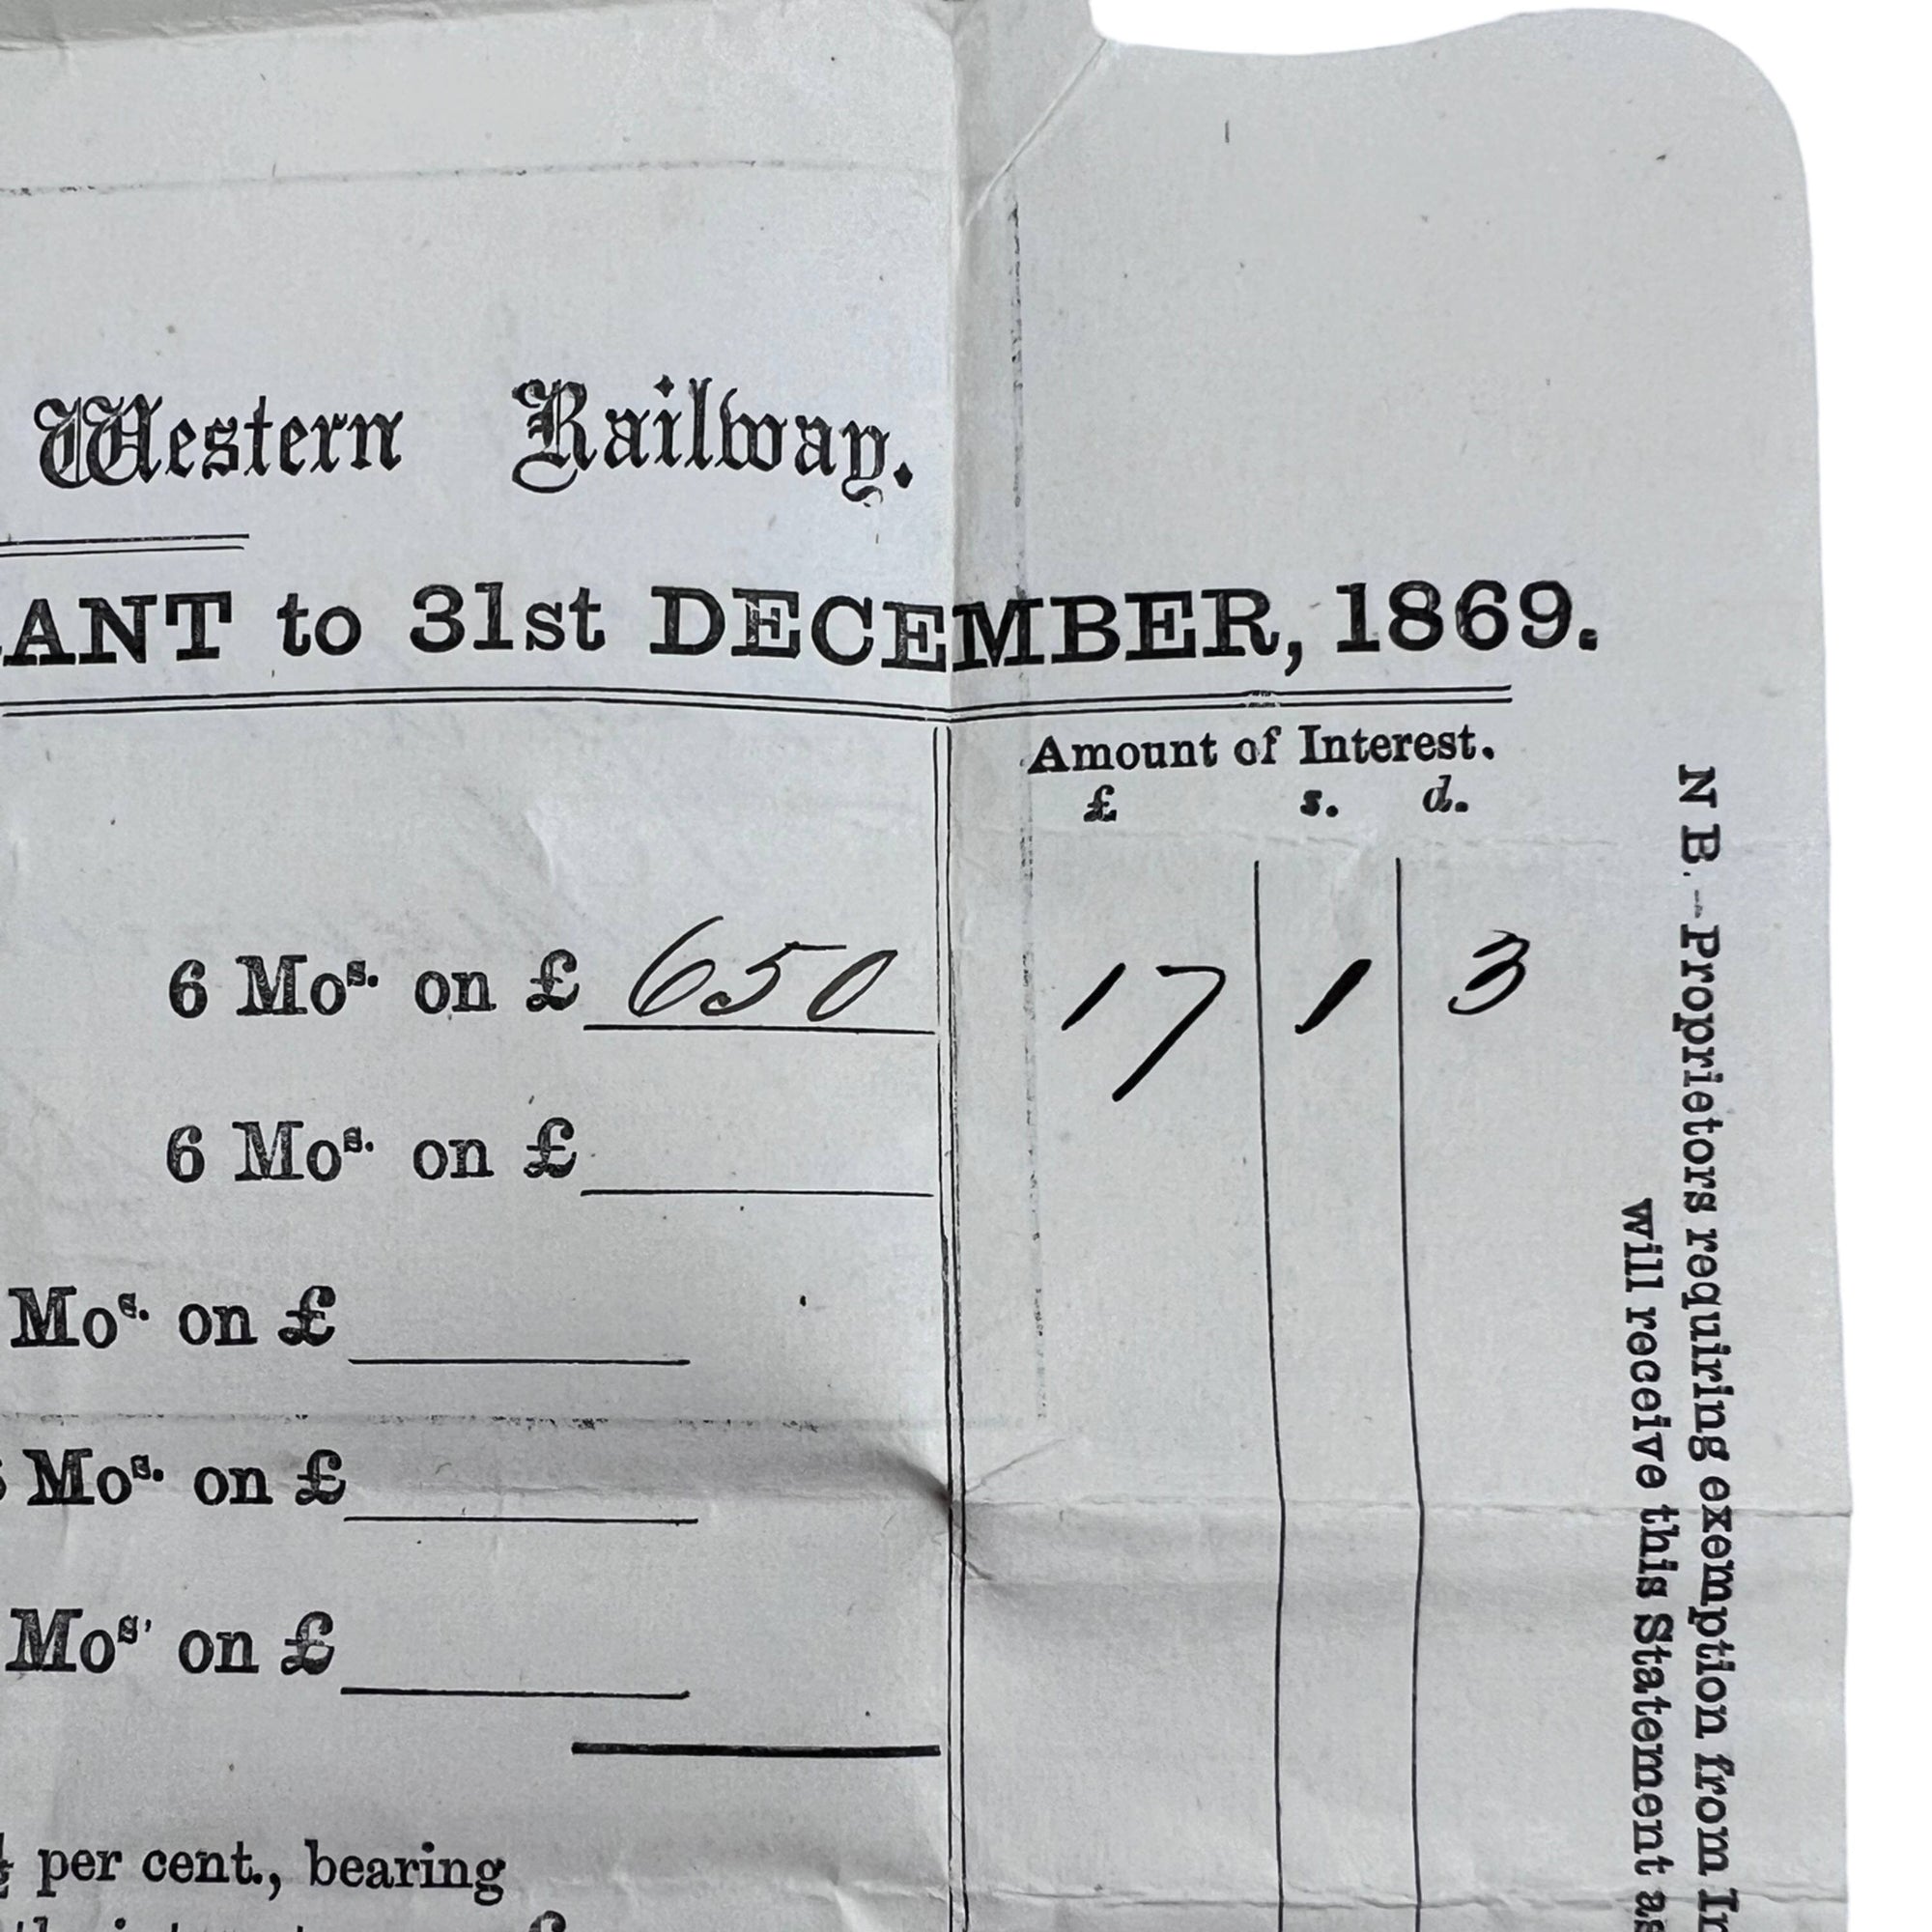 Western Railway.
ANT to 31st DECEMBER, 1869.
Amount of Interest.
£ s. d.
6 Mos. on £ 650 17 1 3
6 Mos. on £
Mos. on £
Mos. on £
Mos' on £
per cent., bearing
N B.-Proprietors requiring exemption from In
will receive this Statement as